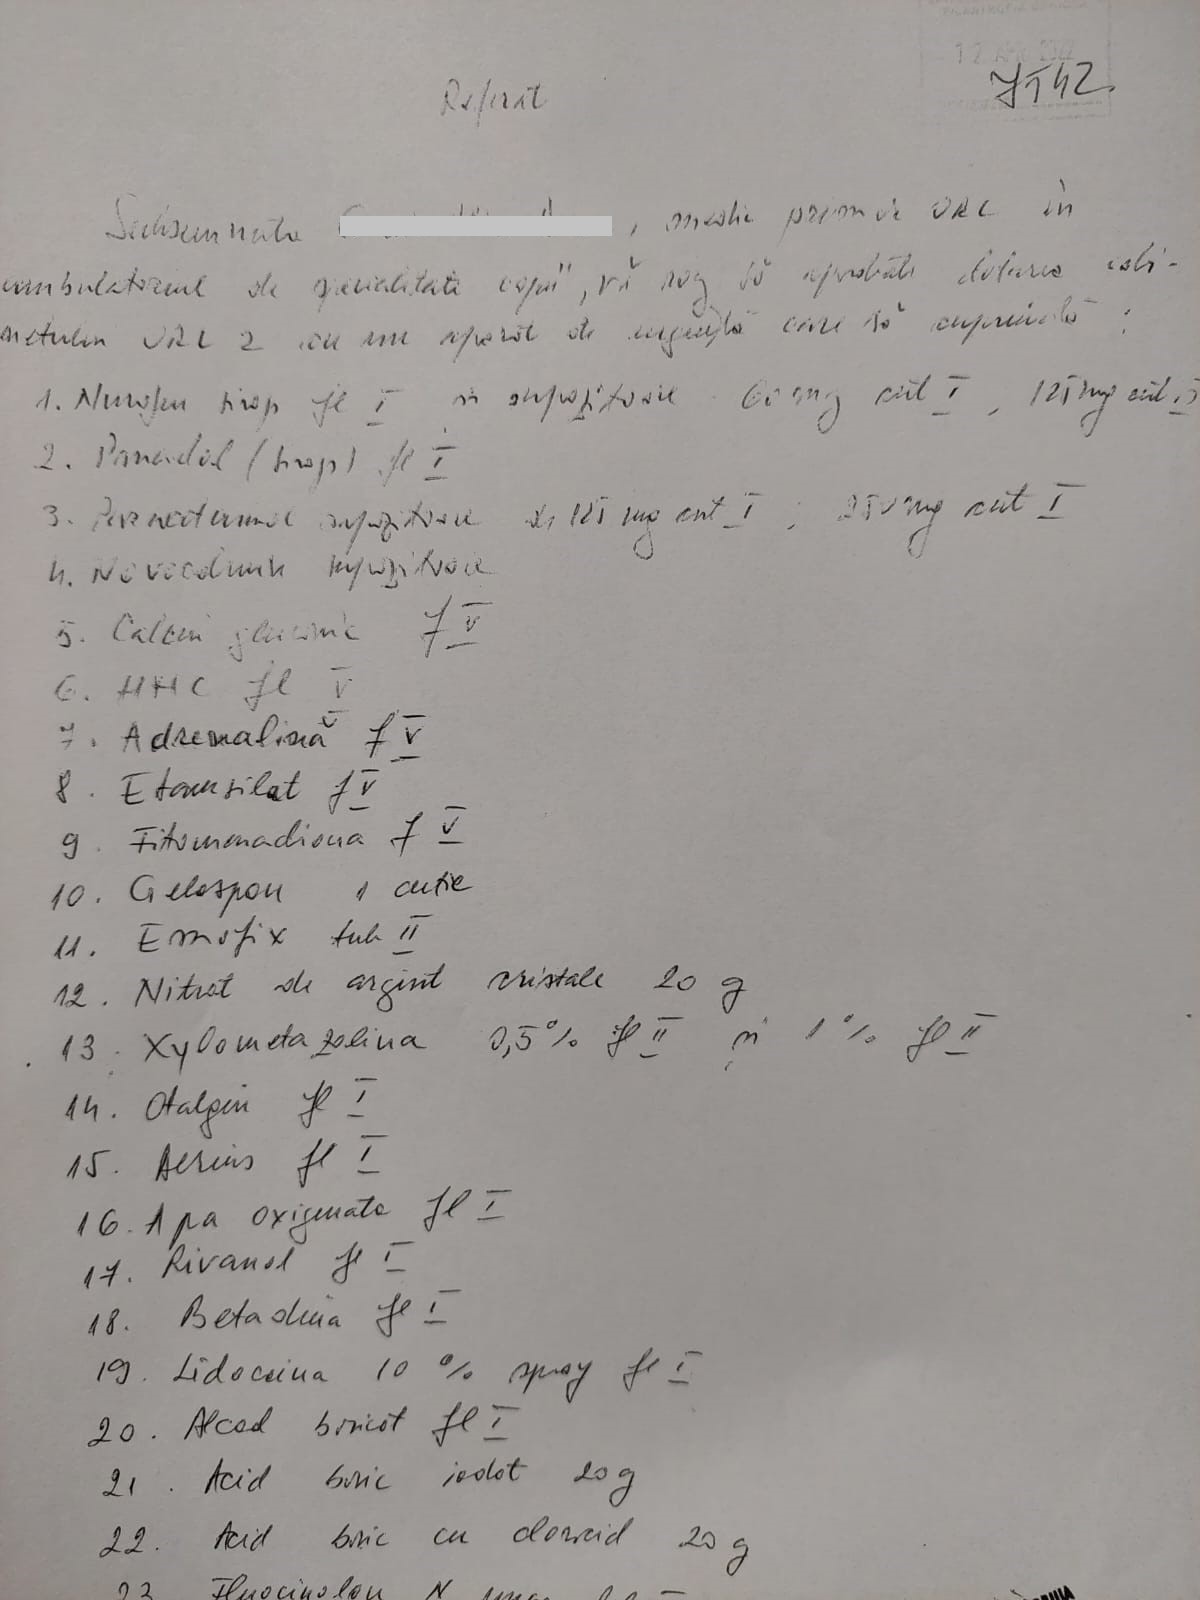 12 APR 2022
7142
Referat
Subsemnata , medic primar ORL în
ambulatoriul de specialitate copii, vă rog să aprobati dotarea cabi-
netului ORL 2 cu un aparat de urgență care să cuprindă :
1. Nurofen sirop fl I și supozitoare 60 mg cut I , 125 mg cut I
2. Panadol (sirop) fl I
3. Paracetamol supozitoare 125 mg cut I ; 250 mg cut I
4. Novocalmin supozitoare
5. Calciu gluconic f V
6. HHC fl V
7. Adrenalină f V
8. Etamsilat f V
9. Fitomenadiona f V
10. Gelaspon 1 cutie
11. Emofix tub II
12. Nitrat de argint cristale 20 g
13. Xylometazolina 0,5% fl II și 1% fl II
14. Otalgin fl I
15. Aerius fl I
16. Apa oxigenata fl I
17. Rivanol fl I
18. Betadina fl I
19. Lidocaina 10 % spray fl I
20. Alcool boricat fl I
21. Acid boric iodat 20 g
22. Acid boric cu clorocid 20 g
23 Fluocinolon N